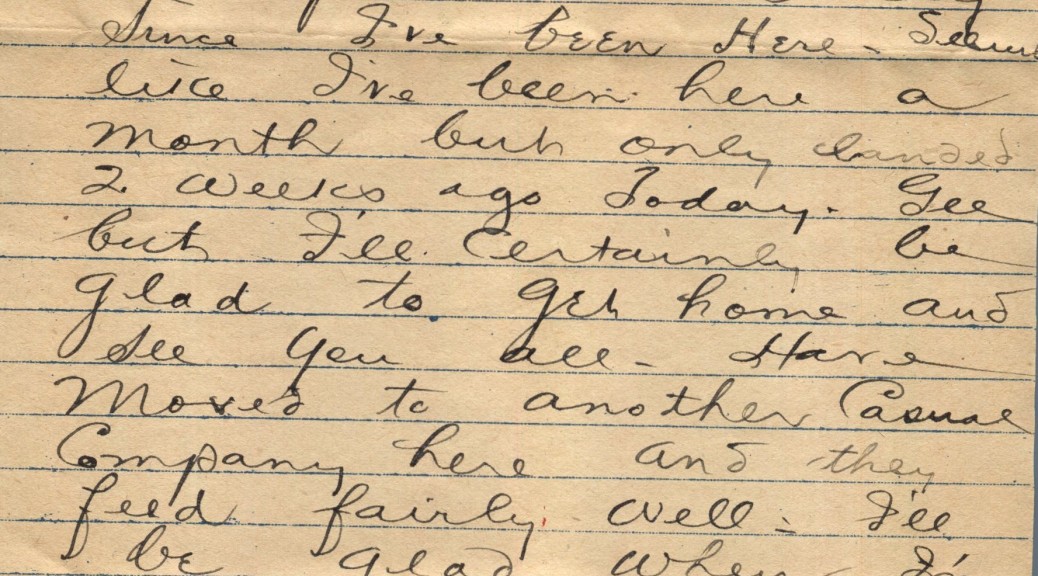 Since I've been Here - Seems
like I've been here a
month but only landed
2 weeks ago Today. Gee
but I'll Certainly be
glad to get home and
see you all - Have
Moved to another Casual
Company here and they
feed fairly well - I'll
be glad when I'